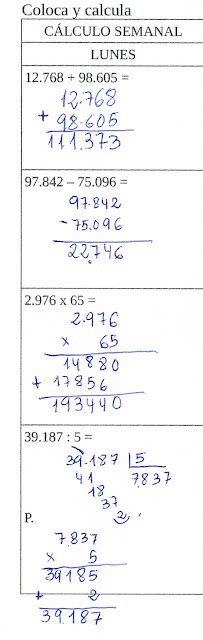 Coloca y calcula
CÁLCULO SEMANAL
LUNES
12.768 + 98.605 =
12.768
+ 98.605
111.373
97.842 – 75.096 =
97.842
- 75.096
22.746
2.976 x 65 =
2.976
x 65
14880
+ 17856
193.440
39.187 : 5 =
39.187 5
41 7837
18
37
2
P.
7837
x 5
39185
+ 2
39.187